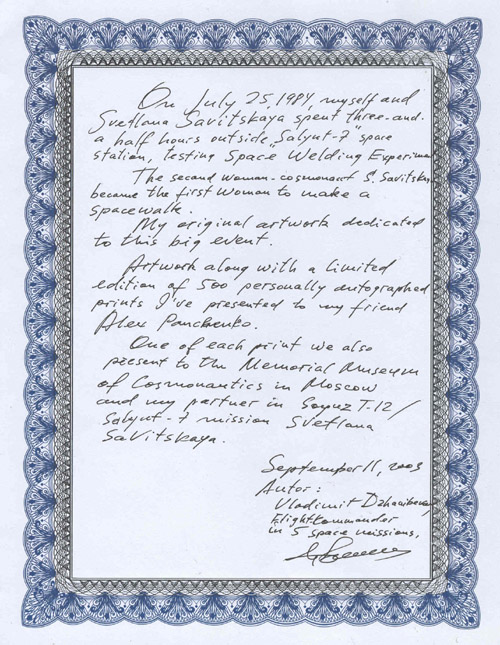 On July 25, 1984, myself and
Svetlana Savitskaya spent three-and-
a half hours outside „Salyut-7" space
station, testing Space Welding Experiment
The second woman-cosmonaut S. Savitskaya
became the first woman to make a
spacewalk.
My original artwork dedicated
to this big event.
Artwork along with a limited
edition of 500 personally autographed
prints I've presented to my friend
Alex Panchenko.
One of each print we also
present to the Memorial Museum
of Cosmonautics in Moscow
and my partner in Soyuz T-12/
Salyut-7 mission Svetlana
Savitskaya.
September 11, 2003
Autor:
Vladimir Dzhanibekov
Flight Kommander
in 5 space missions,